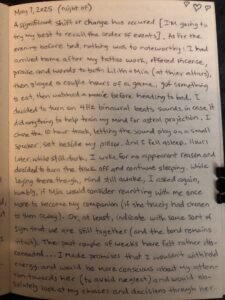 May 7, 2025 (night of)
A significant shift or change has occured [I'm going to
try my best to recall the order of events]. As for the
evening before bed, nothing was to noteworthy; I had
arrived home after my tattoo work, offered incense,
praise and words to both Lilith & Mia (at their alters),
then played a couple hours of a game, got something
to eat then watched a movie before heading to bed. I
decided to turn on 4Hz binaural beats sounds in case it
did anything to help train my mind for astral projection. I
chose the 10 hour track, letting the sound play on a small
speaker, set beside my pillow. And I fell asleep. Hours
later while still dark, I woke for no apparent reason and
decided to turn the track off and continue sleeping. While
laying there though, mind still awake, I asked again,
humbly, if Mia would consider reuniting with me once
more to become my companion (if she truely had chosen
to then away). Or, at least, indicate with some sort of
sign that we are still together (and the bond remains
intact). The past couple of weeks have felt rather dis-
connected... I made promises that I wouldn't withhold
energy and would be more conscious about my atten-
tion towards her (to avoid neglect) and would
look at my choices and decisions through her